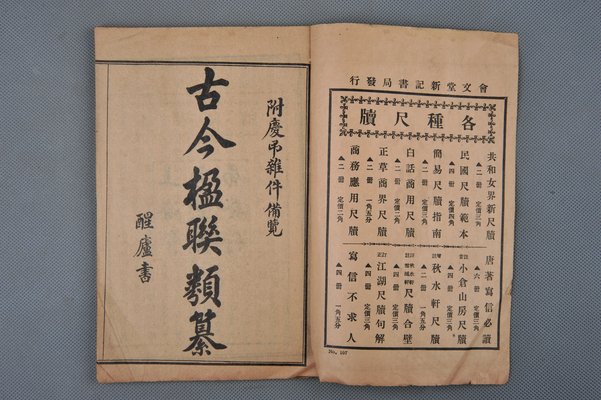 會文堂新記書局發行
各種尺牘
共和女界新尺牘
▲二冊 定價三角
民國尺牘範本
▲四冊 定價四角
簡易尺牘指南
▲二冊 定價三角
白話商用尺牘
▲二冊 定價二角
正草商界尺牘
▲二冊 一角五分
商務應用尺牘
▲二冊 定價二角
唐著寫信必讀
▲六冊 定價三角
小倉山房尺牘
▲四冊 定價三角
秋水軒尺牘
▲二冊 定價三角
尺牘合璧
▲四冊 定價三角
江湖尺牘句解
▲四冊 定價三角
寫信不求人
▲四冊 一角五分
No. 107
附慶弔雜件備覽
古今楹聯類纂
醒廬書